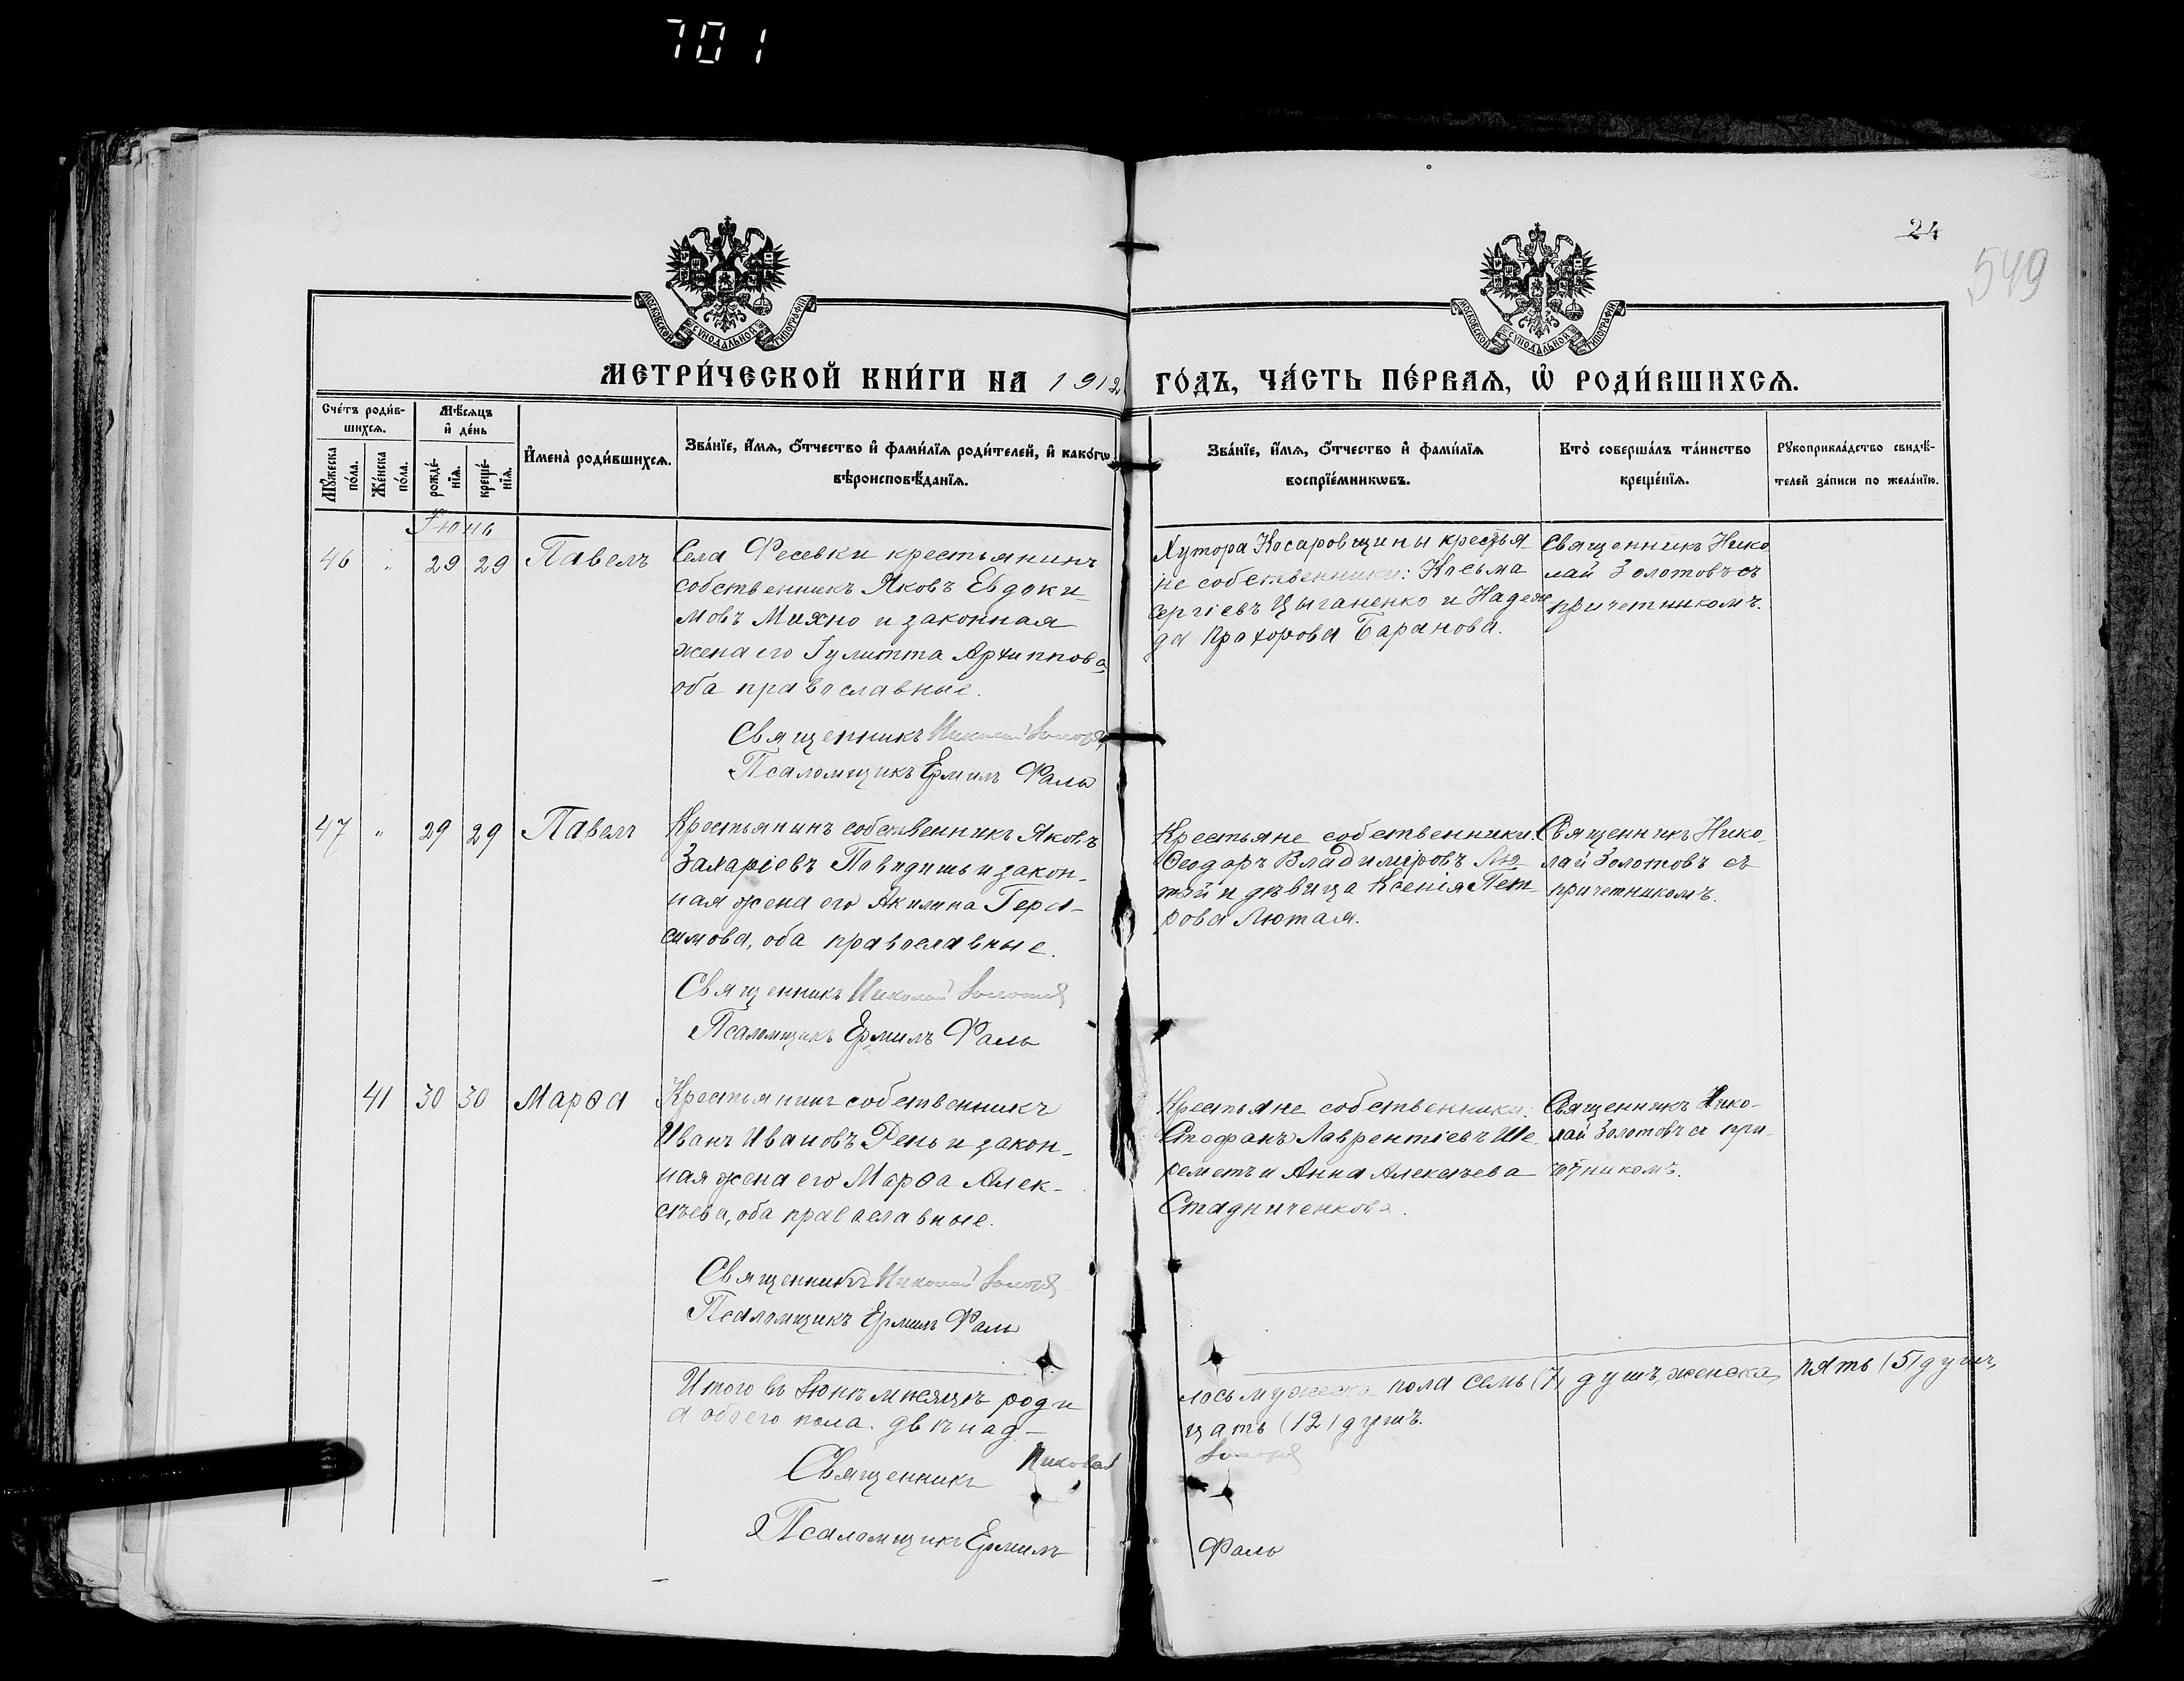 701
24
549
МОСКОВСКОЙ СУНОДАЛЬНОЙ ТИПОГРАФІИ
МОСКОВСКОЙ СУНОДАЛЬНОЙ ТИПОГРАФІИ
МЕТРИ́ЧЕСКОЙ КНИ́ГИ НА 1912 ГО́ДЪ, ЧА́СТЬ ПЕ́РВАѦ, Ѡ҆ РОДИ́ВШИХСѦ.
Сче́тъ роди́в-
шихсѧ.
Мꙋ́жеска
по́ла.
Же́нска
по́ла.
Мѣ́сѧцъ
и҆ де́нь
рожде́-
нїѧ.
креще́-
нїѧ.
И҆мена̀ роди́вшихсѧ.
Зва́нїе, и҆́мѧ, ѻ҆́тчество и҆ фами́лїѧ роди́телей, и҆ како́гѡ
вѣроисповѣ́данїѧ.
Зва́нїе, и҆́мѧ, ѻ҆́тчество и҆ фами́лїѧ
воспрїе́мникѡвъ.
Кто̀ соверша́лъ та́инство
креще́нїѧ.
Рꙋкоприкла́дство свидѣ́-
телей за́писи по жела́нїю.
Іюнь
46 " 29 29 Павелъ
Села Фесевки крестьянинъ
собственникъ Яковъ Евдоки-
мовъ Михно и законная
жена его Іулитта Архиппова,
оба православные.
Священникъ Николай Золотовъ
Псаломщикъ Ермилъ Фаль
Хутора Косаровщины крестья-
не собственники: Косьма
Сергіевъ Цыганенко и Надеж
да Прохорова Баранова.
Священникъ Нико
лай Золотовъ съ
причетникомъ.
47 " 29 29 Павелъ
Крестьянинъ собственникъ Яковъ
Захаріевъ Повидишь и закон-
ная жена его Акилина Гера-
симова, оба православные.
Священникъ Николай Золотовъ
Псаломщикъ Ермилъ Фаль
Крестьяне собственники:
Ѳеодоръ Владиміровъ Лю-
тый и дѣвица Ксенія Пет-
рова Лютая.
Священникъ Нико-
лай Золотовъ съ
причетникомъ.
41 30 30 Марѳа
Крестьянинъ собственникъ
Иванъ Ивановъ Рень и закон-
ная жена его Марѳа Алек-
сѣева, оба православные.
Священникъ Николай Золотовъ
Псаломщикъ Ермилъ Фаль
Крестьяне собственники:
Стефанъ Лаврентіевъ Ше-
реметъ и Анна Алексѣева
Стадниченкова.
Священникъ Нико-
лай Золотовъ съ при-
четникомъ.
Итого въ Іюнѣ мѣсяцѣ роди
лось мужеска пола семь (7) душъ, женска, пять (5) душъ,
а обоего пола. двѣнад-
цать (12) душъ.
Священникъ Николай Золотовъ
Псаломщикъ Ермилъ Фаль